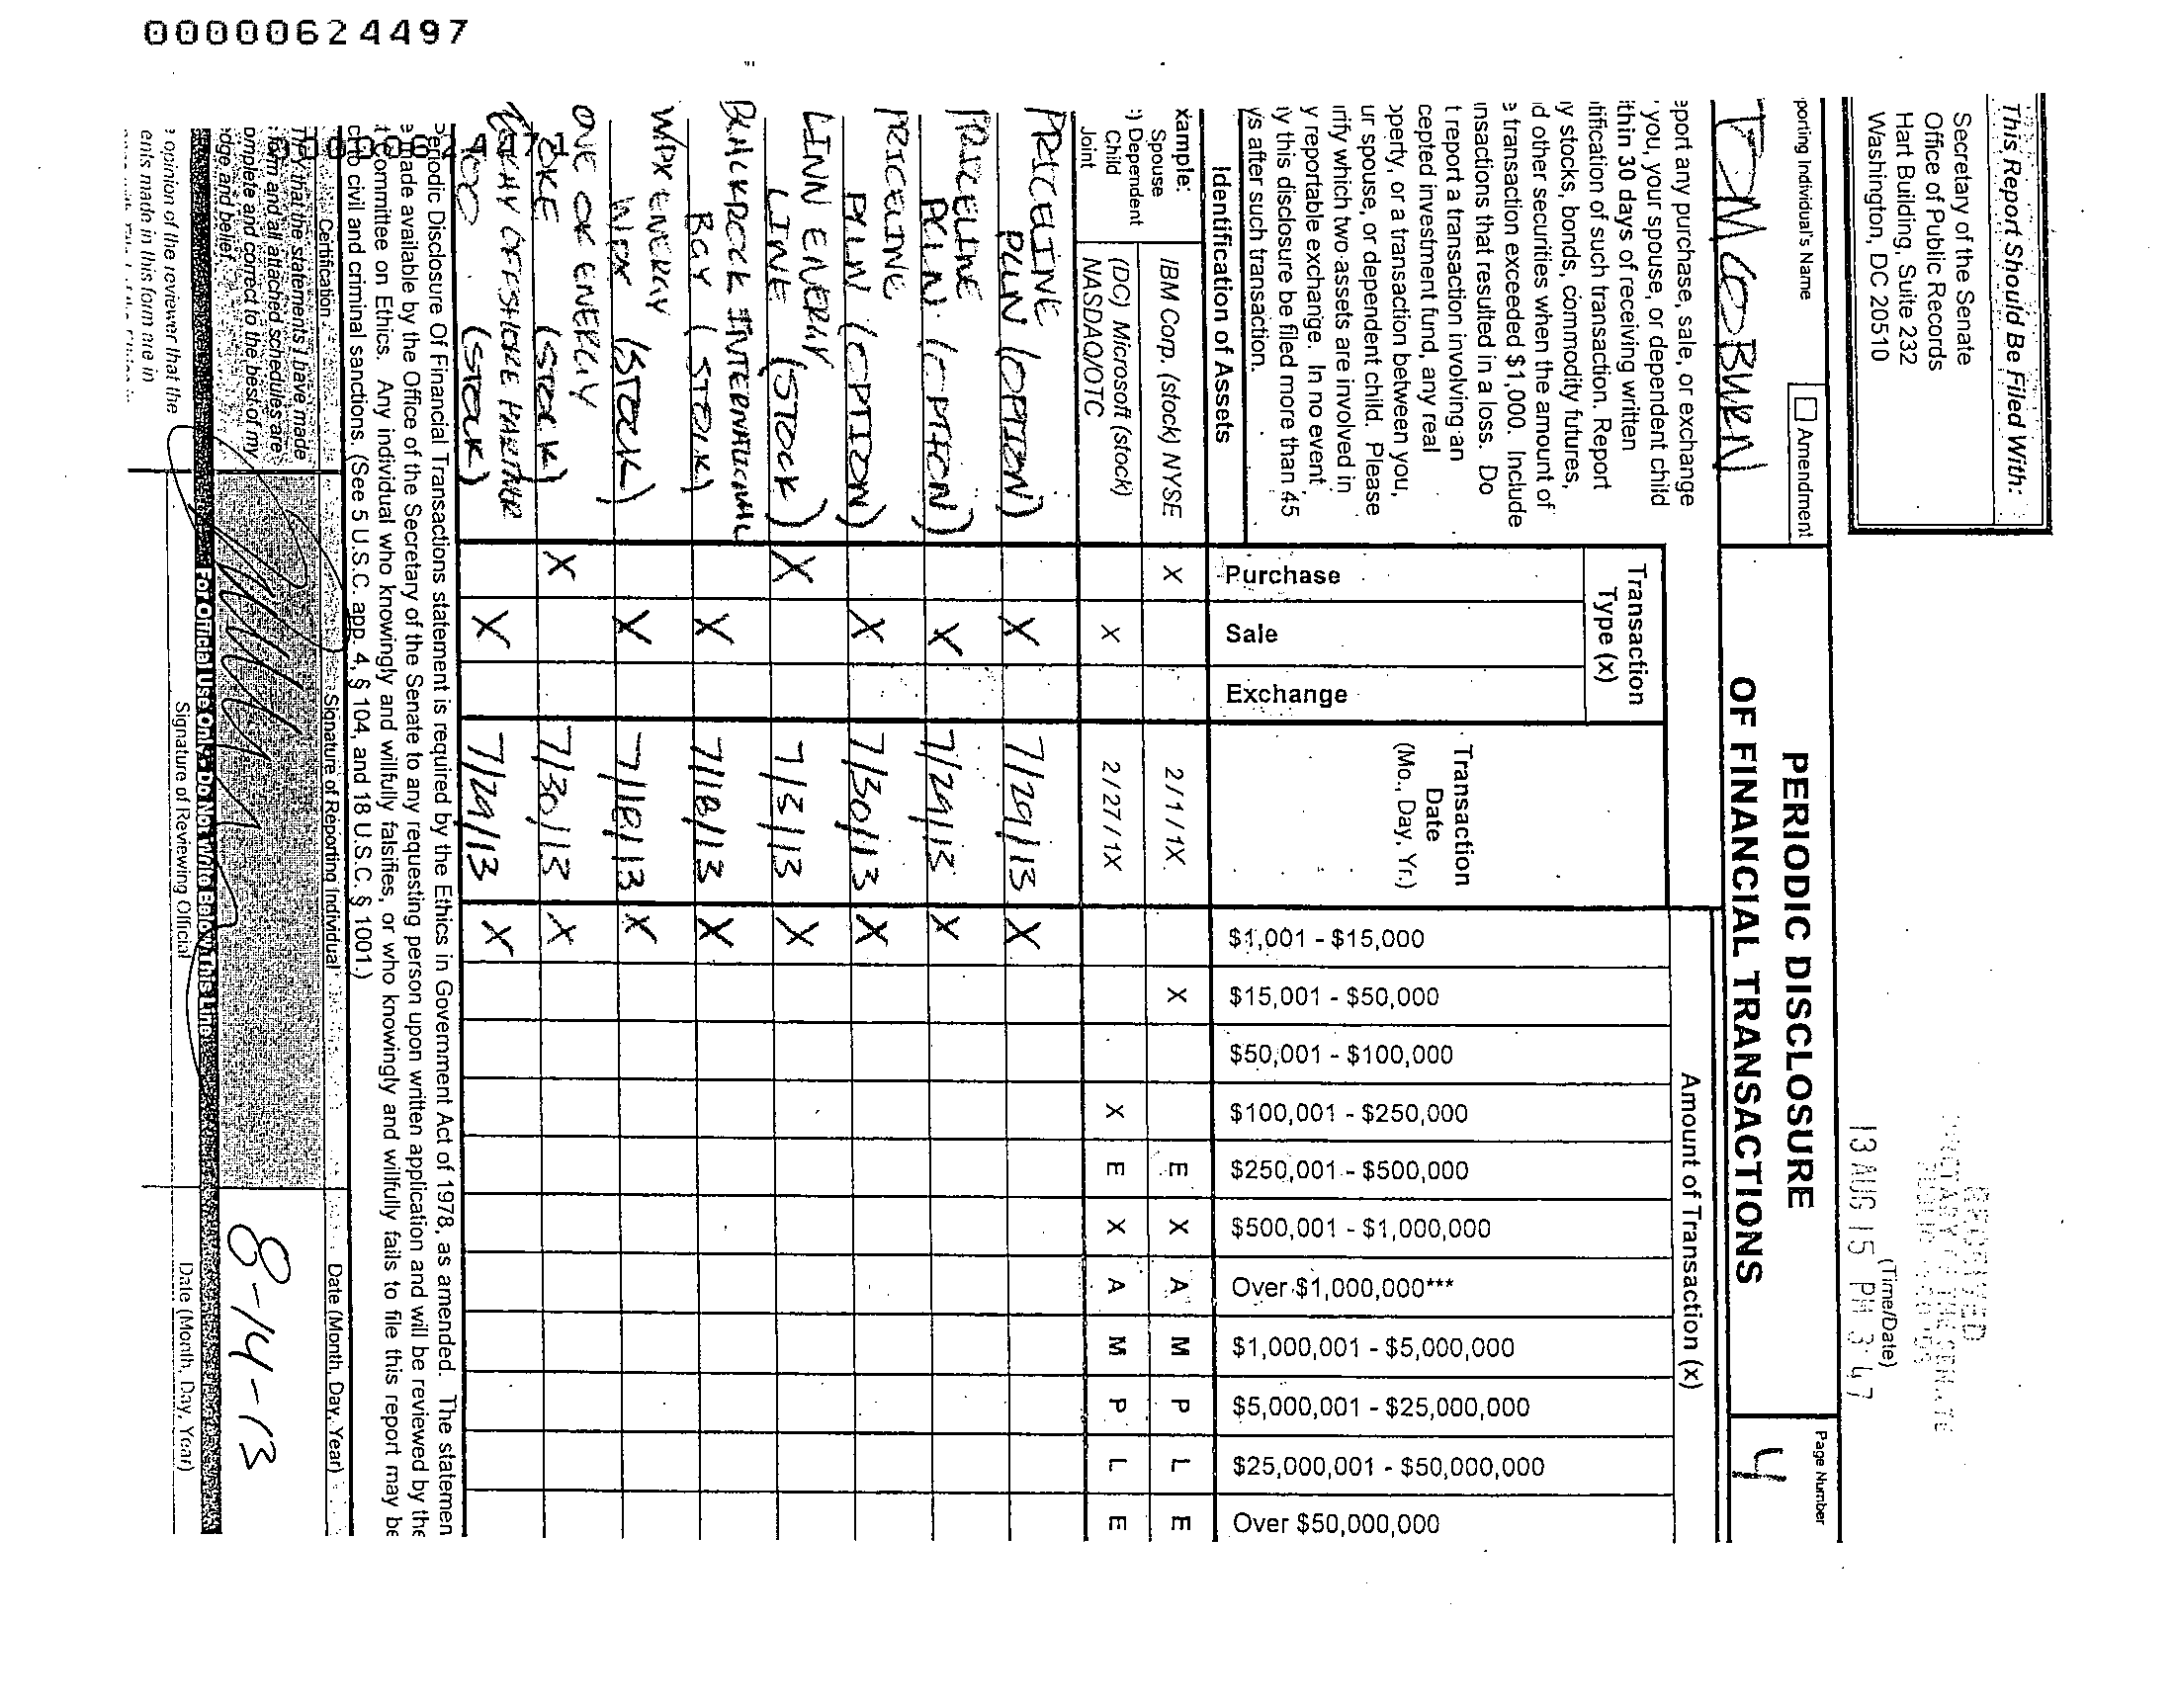 00000624497
This Report Should Be Filed With:
Secretary of the Senate
Office of Public Records
Hart Building, Suite 232
Washington, DC 20510
(Time/Date)
13 AUG 15 PM 3:47
porting Individual's Name
☐ Amendment
PERIODIC DISCLOSURE
OF FINANCIAL TRANSACTIONS
Page Number
4
COBURN
eport any purchase, sale, or exchange
you, your spouse, or dependent child
ithin 30 days of receiving written
tification of such transaction. Report
y stocks, bonds, commodity futures,
d other securities when the amount of
e transaction exceeded $1,000. Include
ansactions that resulted in a loss. Do
t report a transaction involving an
cepted investment fund, any real
operty, or a transaction between you,
ur spouse, or dependent child. Please
rify which two assets are involved in
y reportable exchange. In no event
y this disclosure be filed more than 45
ys after such transaction.
Transaction
Type (x)
Transaction
Date
(Mo., Day, Yr.)
Amount of Transaction (x)
Identification of Assets
Purchase
Sale
Exchange
$1,001 - $15,000
$15,001 - $50,000
$50,001 - $100,000
$100,001 - $250,000
$250,001 - $500,000
$500,001 - $1,000,000
Over $1,000,000***
$1,000,001 - $5,000,000
$5,000,001 - $25,000,000
$25,000,001 - $50,000,000
Over $50,000,000
xample:
Spouse
) Dependent
Child
Joint
IBM Corp. (stock) NYSE X 2/1/1X X E X A M P L E
(DC) Microsoft (stock)
NASDAQ/OTC X 2/27/1X X E X A M P L E
PRICELINE
PCLN (OPTION) X 7/29/13 X
PRICELINE
PCLN (OPTION) X 7/29/13 X
PRICELINE
PCLN (OPTION) X 7/30/13 X
LINN ENERGY
LINE (STOCK) X 7/3/13 X
BLACKROCK INTERNATIONAL
BGY (STOCK) X 7/18/13 X
WPX ENERGY
WPX (STOCK) X 7/18/13 X
ONE OK ENERGY
OKE (STOCK) X 7/30/13 X
OFFSHORE PARTNER
(STOCK) X 7/29/13 X
eriodic Disclosure Of Financial Transactions statement is required by the Ethics in Government Act of 1978, as amended. The statemen
e made available by the Office of the Secretary of the Senate to any requesting person upon written application and will be reviewed by the
t Committee on Ethics. Any individual who knowingly and willfully falsifies, or who knowingly and willfully fails to file this report may be
ct to civil and criminal sanctions. (See 5 U.S.C. app. 4, § 104, and 18 U.S.C. § 1001.)
Certification
Signature of Reporting Individual
Date (Month, Day, Year)
that the statements I have made
form and all attached schedules are
omplete and correct to the best of my
dge and belief.
8-14-13
For Official Use Only - Do Not Write Below This Line
e opinion of the reviewer that the
ents made in this form are in
Signature of Reviewing Official
Date (Month, Day, Year)